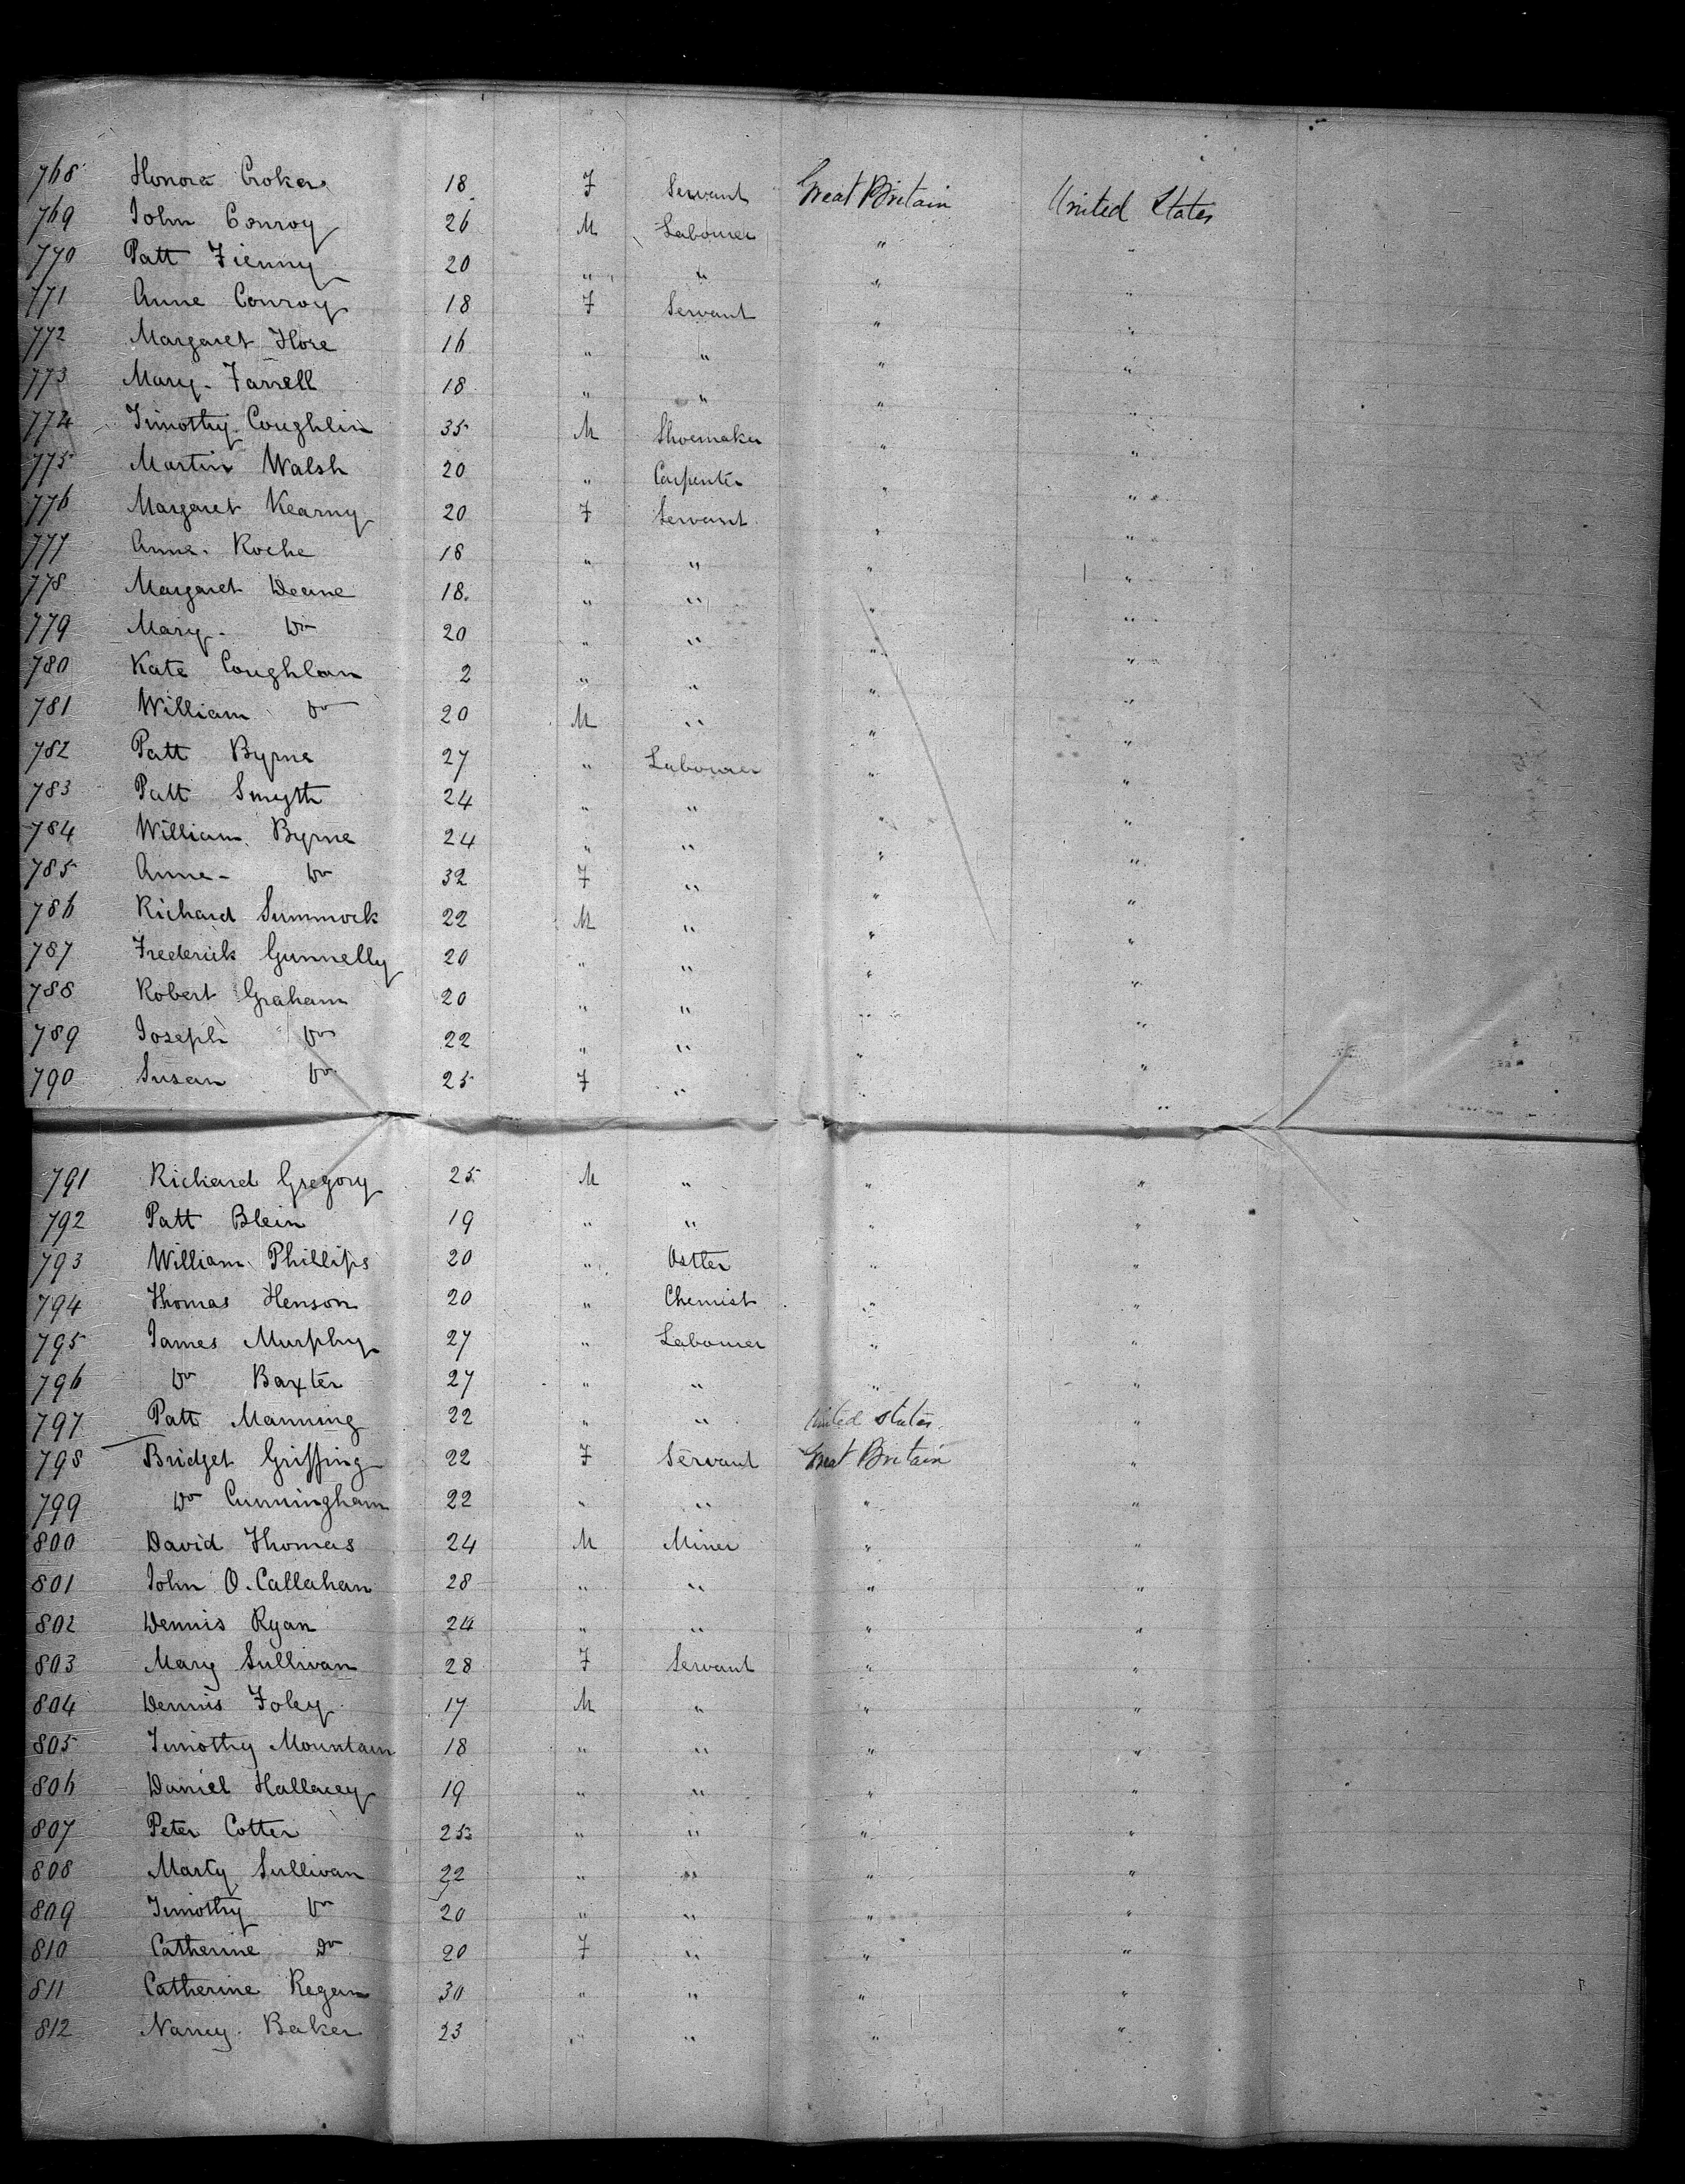 768 Honora Croker 18 F Servant Great Britain United States
769 John Conroy 26 M Labourer " "
770 Patt Fienny 20 " " " "
771 Anne Conroy 18 F Servant " "
772 Margaret Hore 16 " " " "
773 Mary Farrell 18 " " " "
774 Timothy Coughlin 35 M Shoemaker " "
775 Martin Walsh 20 " Carpenter " "
776 Margaret Kearny 20 F Servant " "
777 Anne Roche 18 " " " "
778 Margaret Deane 18 " " " "
779 Mary Do 20 " " " "
780 Kate Coughlan 2 " " " "
781 William Do 20 M " " "
782 Patt Byrne 27 " Labourer " "
783 Patt Smyth 24 " " " "
784 William Byrne 24 " " " "
785 Anne Do 32 F " " "
786 Richard Summock 22 M " " "
787 Frederick Gunnelly 20 " " " "
788 Robert Graham 20 " " " "
789 Joseph Do 22 " " " "
790 Susan Do 25 F " " "
791 Richard Gregory 25 M " " "
792 Patt Blein 19 " " " "
793 William Phillips 20 " Ostler " "
794 Thomas Henson 20 " Chemist " "
795 James Murphy 27 " Labourer " "
796 Do Baxter 27 " " " "
797 Patt Manning 22 " " United States "
798 Bridget Griffing 22 F Servant Great Britain "
799 Do Cunningham 22 " " " "
800 David Thomas 24 M Miner " "
801 John O. Callahan 28 " " " "
802 Dennis Ryan 24 " " " "
803 Mary Sullivan 28 F Servant " "
804 Dennis Foley 17 M " " "
805 Timothy Mountain 18 " " " "
806 Daniel Hallacey 19 " " " "
807 Peter Cotter 25 " " " "
808 Marty Sullivan 22 " " " "
809 Timothy Do 20 " " " "
810 Catherine Do 20 F " " "
811 Catherine Regan 30 " " " "
812 Nancy Baker 23 " " " "